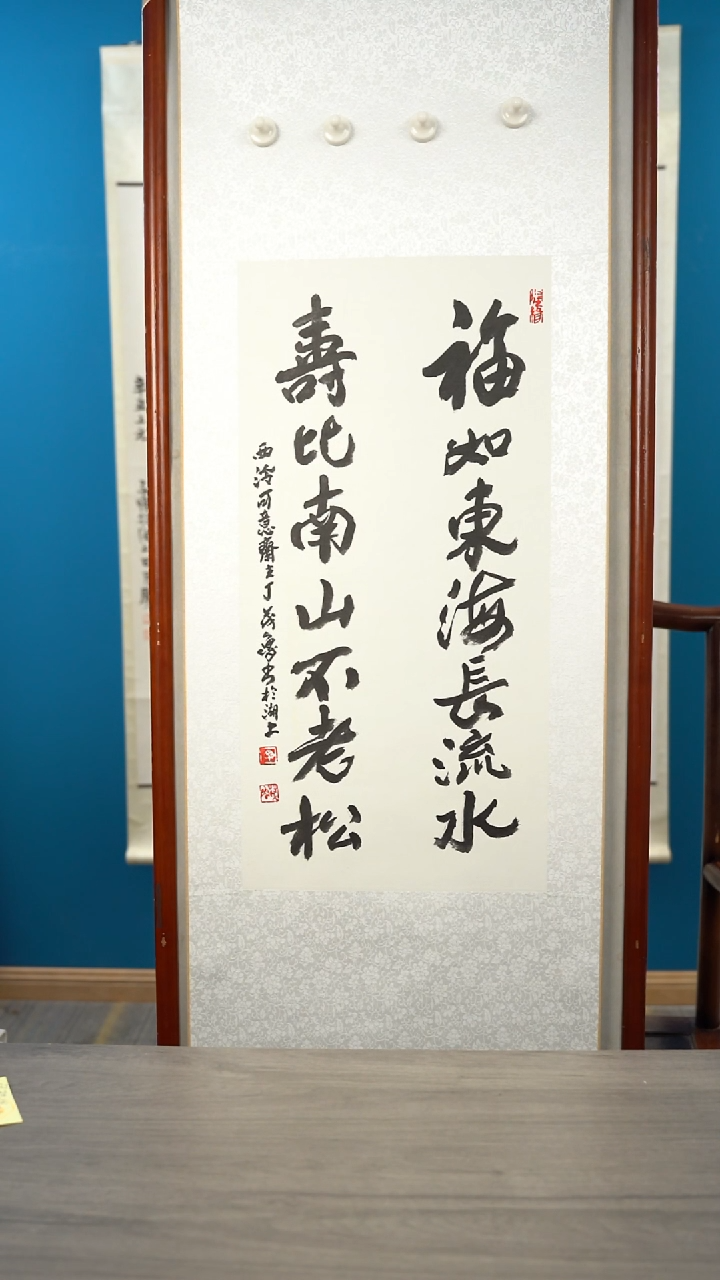 福如東海長流水
壽比南山不老松
西泠可意齋主丁茂魯書於湖上